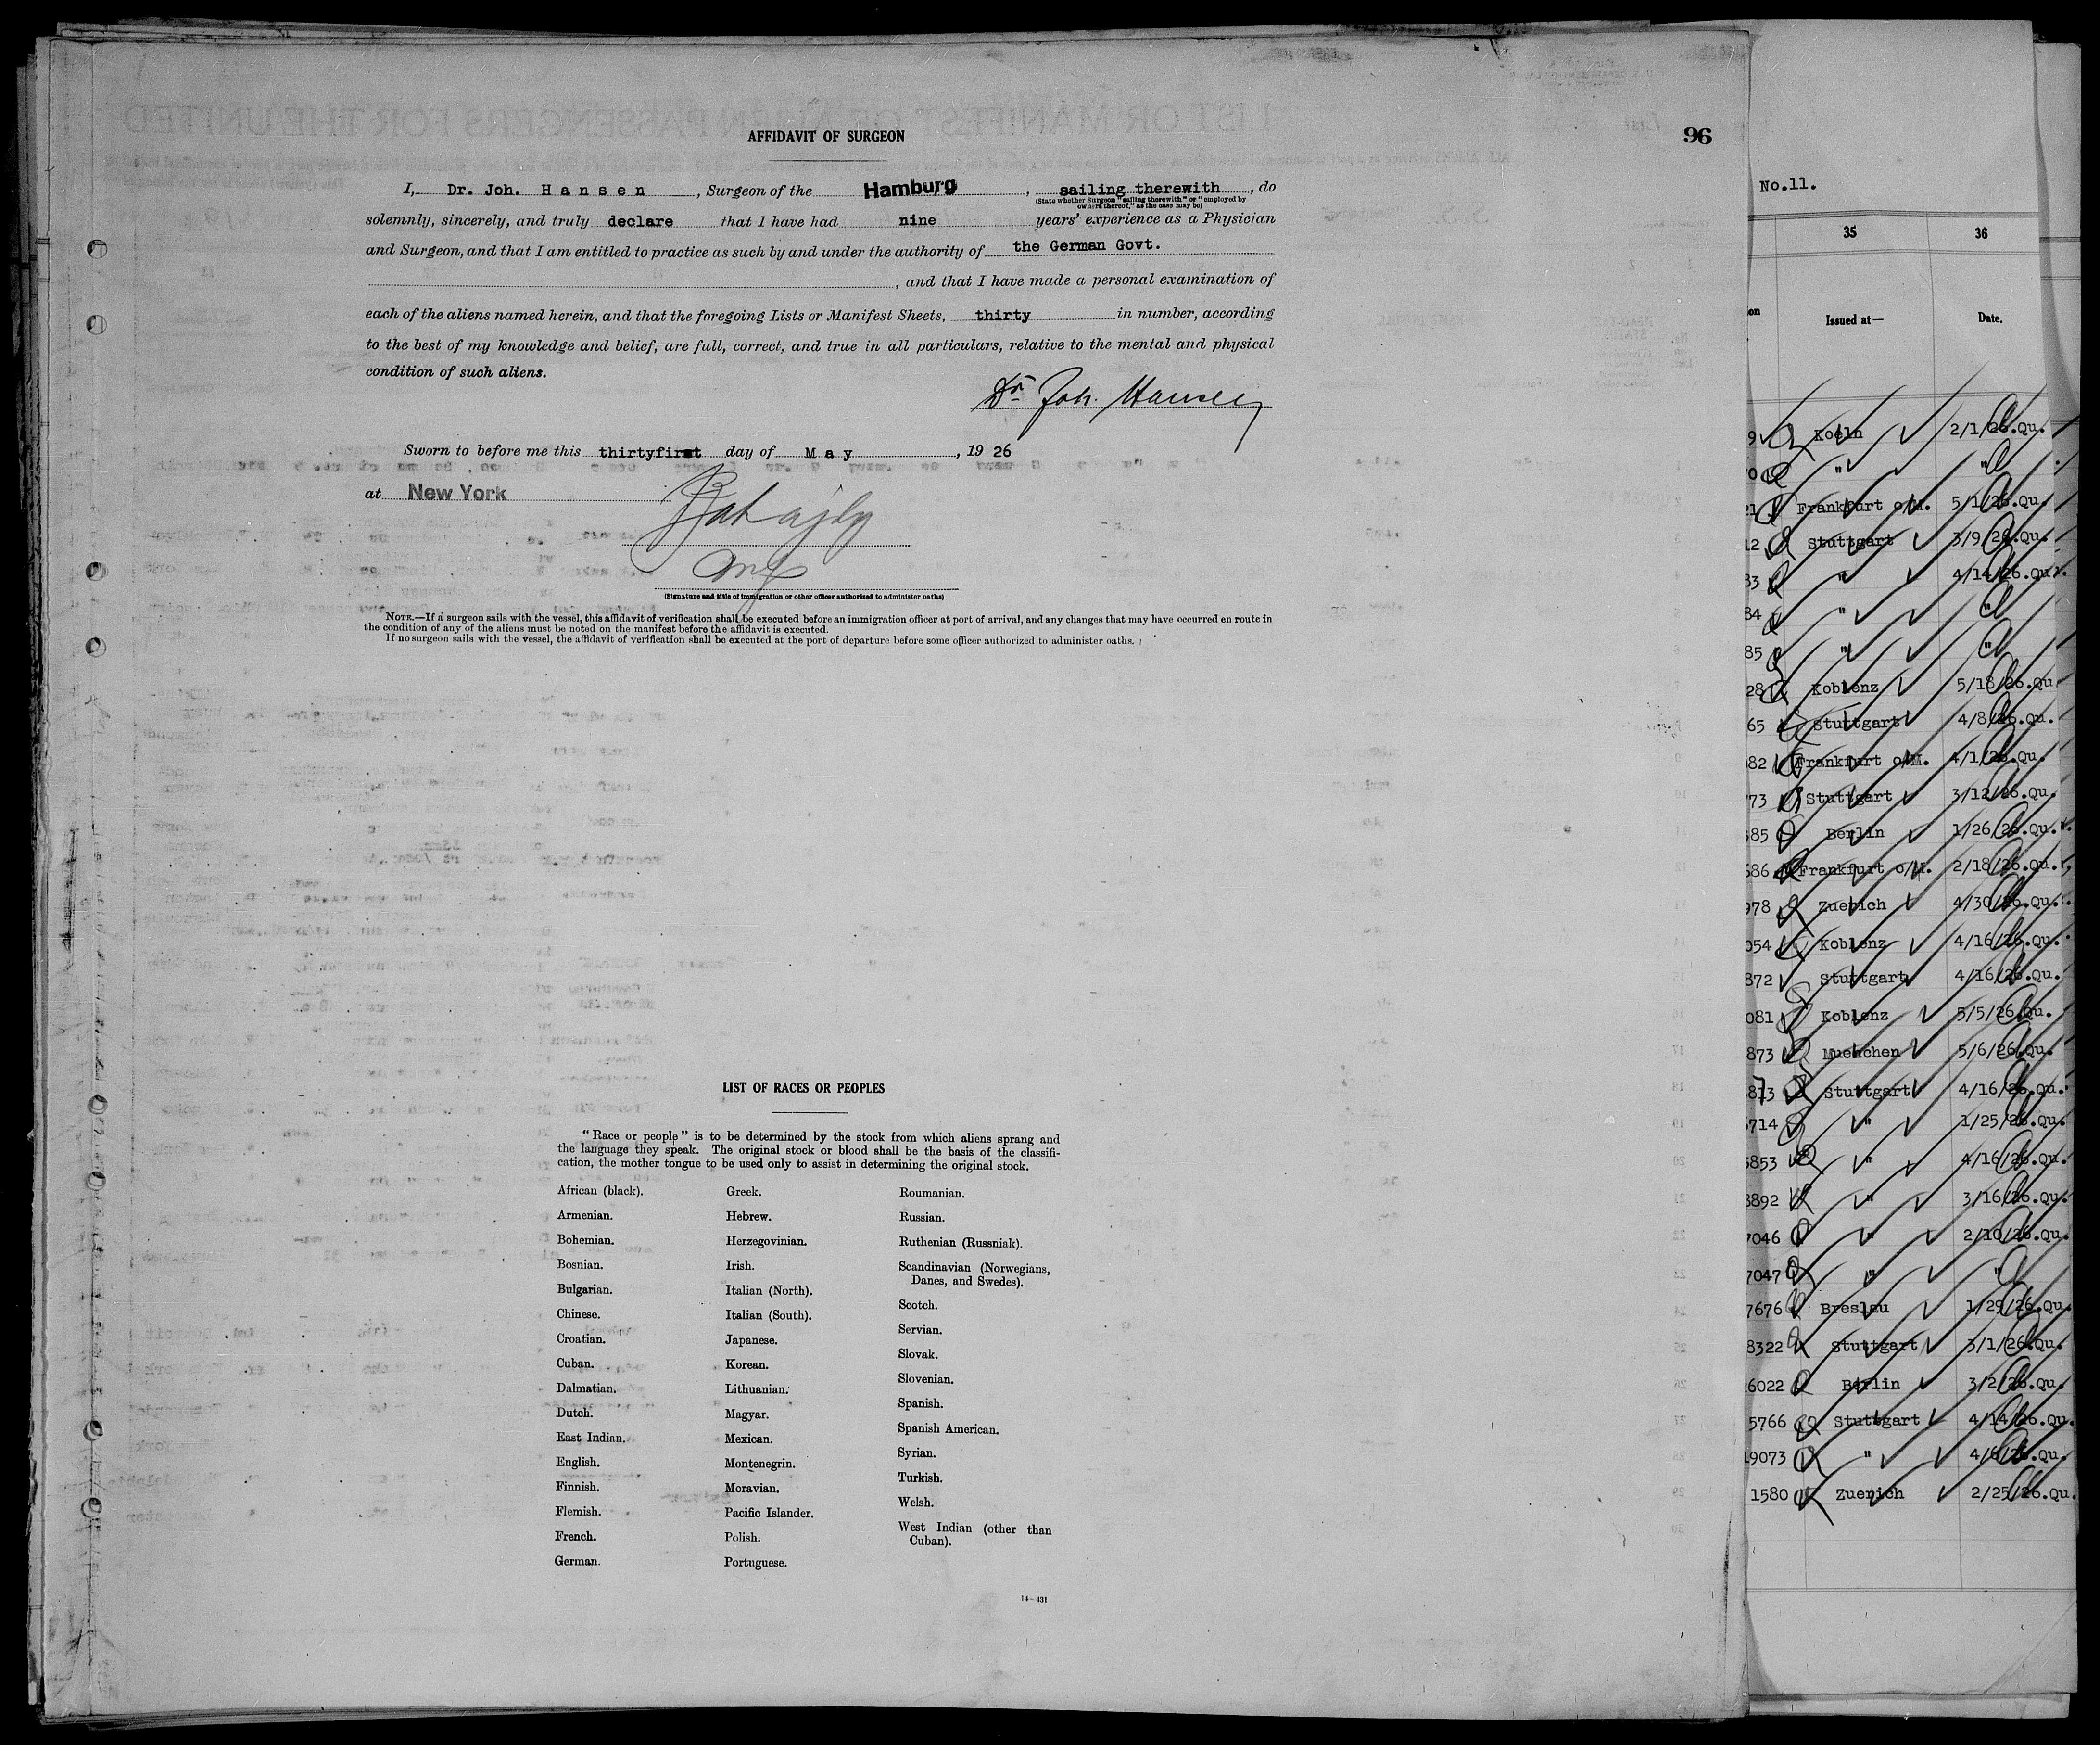 96
AFFIDAVIT OF SURGEON
I, Dr. Joh. Hansen, Surgeon of the Hamburg, sailing therewith, do
(State whether Surgeon "sailing therewith" or "employed by
owners thereof," as the case may be)
solemnly, sincerely, and truly declare that I have had nine years' experience as a Physician
and Surgeon, and that I am entitled to practice as such by and under the authority of the German Govt.
, and that I have made a personal examination of
each of the aliens named herein, and that the foregoing Lists or Manifest Sheets, thirty in number, according
to the best of my knowledge and belief, are full, correct, and true in all particulars, relative to the mental and physical
condition of such aliens.
Dr. Joh. Hansen
Sworn to before me this thirtyfirst day of May, 1926
at New York
(Signature and title of immigration or other officer authorized to administer oaths)
NOTE.—If a surgeon sails with the vessel, this affidavit of verification shall be executed before an immigration officer at port of arrival, and any changes that may have occurred en route in
the condition of any of the aliens must be noted on the manifest before the affidavit is executed.
If no surgeon sails with the vessel, the affidavit of verification shall be executed at the port of departure before some officer authorized to administer oaths.
LIST OF RACES OR PEOPLES
"Race or people" is to be determined by the stock from which aliens sprang and
the language they speak. The original stock or blood shall be the basis of the classifi-
cation, the mother tongue to be used only to assist in determining the original stock.
African (black).
Armenian.
Bohemian.
Bosnian.
Bulgarian.
Chinese.
Croatian.
Cuban.
Dalmatian.
Dutch.
East Indian.
English.
Finnish.
Flemish.
French.
German.
Greek.
Hebrew.
Herzegovinian.
Irish.
Italian (North).
Italian (South).
Japanese.
Korean.
Lithuanian.
Magyar.
Mexican.
Montenegrin.
Moravian.
Pacific Islander.
Polish.
Portuguese.
Roumanian.
Russian.
Ruthenian (Russniak).
Scandinavian (Norwegians,
Danes, and Swedes).
Scotch.
Servian.
Slovak.
Slovenian.
Spanish.
Spanish American.
Syrian.
Turkish.
Welsh.
West Indian (other than
Cuban).
14—431
No.11.
35 36
on Issued at— Date.
9 Koeln 2/1/26.Qu.
0 " "
21 Frankfurt o/M. 5/1/26.Qu.
12 Stuttgart 3/9/26.Qu.
83 " 4/14/26.Qu.
84 " "
85 " "
28 Koblenz 5/18/26.Qu
65 Stuttgart 4/8/26.Qu.
82 Frankfurt o/M. 4/1/26.Qu.
73 Stuttgart 3/12/26.Qu.
85 Berlin 1/26/26.Qu.
586 Frankfurt o/M. 2/18/26.Qu.
978 Zuerich 4/30/26.Qu.
054 Koblenz 4/16/26.Qu.
872 Stuttgart 4/16/26.Qu.
081 Koblenz 5/5/26.Qu.
873 Muenchen 5/6/26.Qu.
813 Stuttgart 4/16/26.Qu.
714 " 1/25/26.Qu.
5853 " 4/16/26.Qu.
8892 " 3/16/26.Qu.
7046 " 2/10/26.Qu.
7047 " "
7676 Breslau 1/29/26.Qu.
8322 Stuttgart 3/1/26.Qu.
6022 Berlin 3/2/26.Qu.
5766 Stuttgart 4/14/26.Qu.
19073 " 4/6/26.Qu.
1580 Zuerich 2/25/26.Qu.